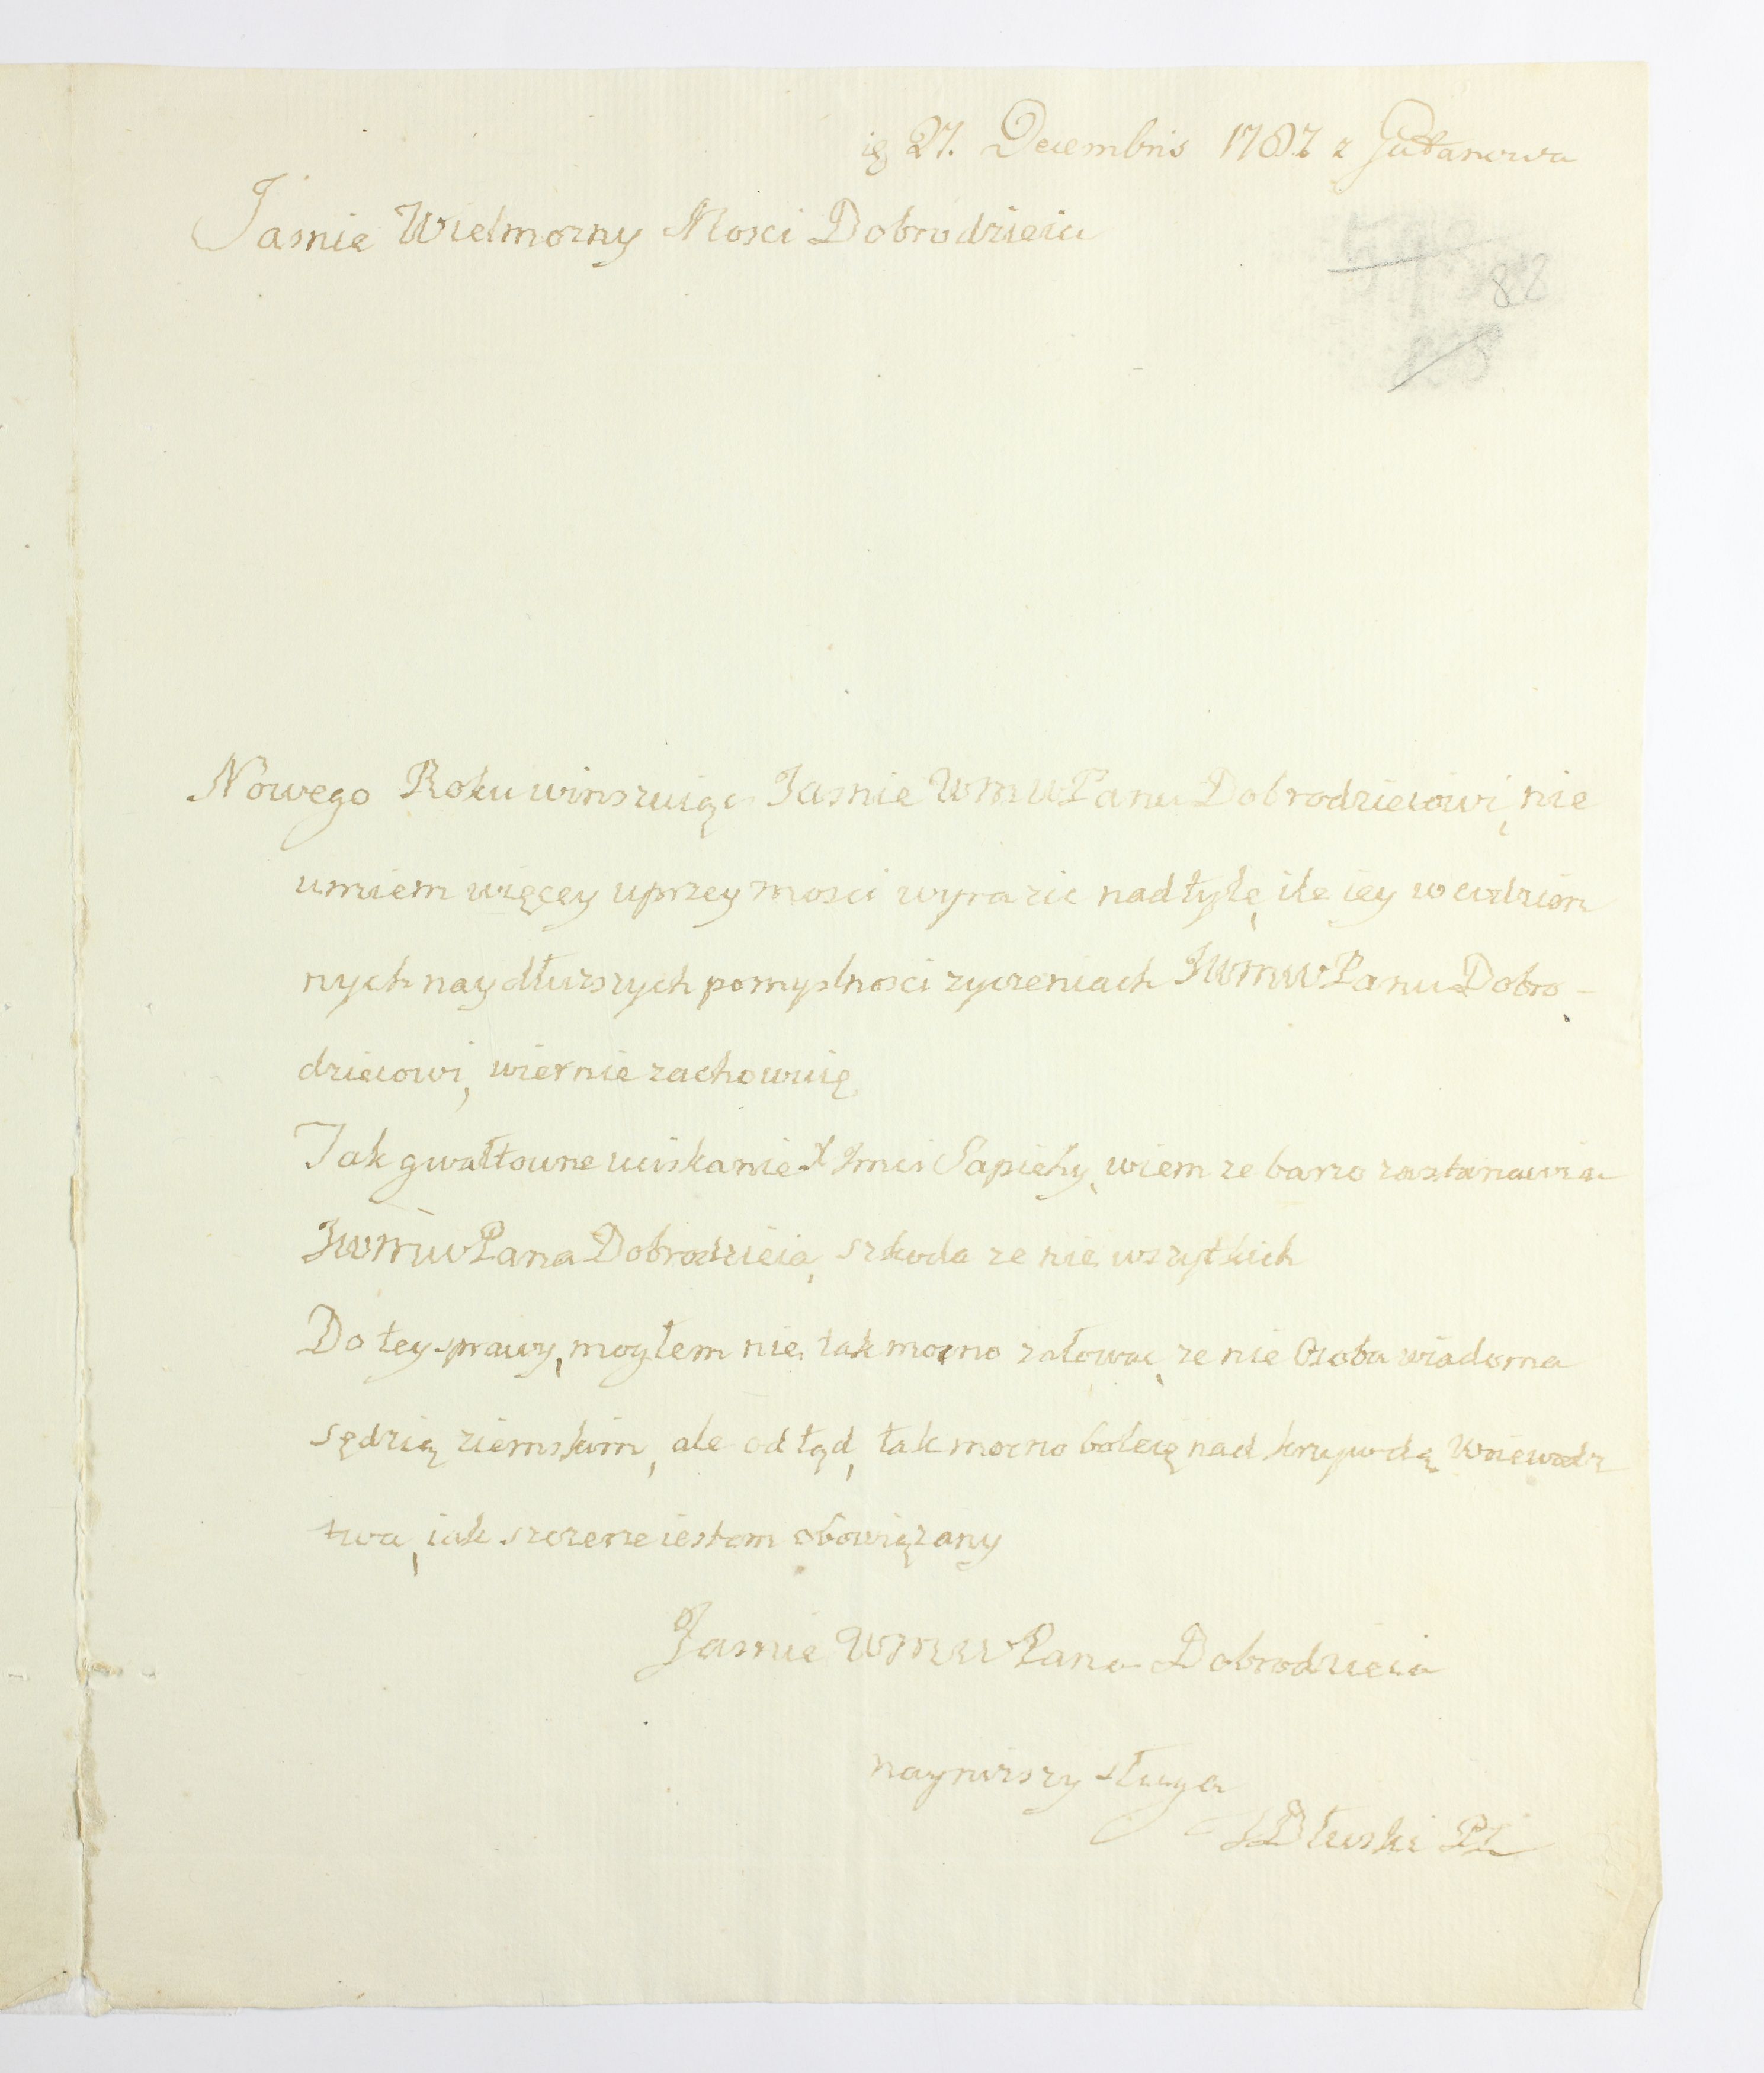 27. Decembris 1787 z Gutanowa
Jasnie Wielmozny Mosci Dobrodzieiu
88
Nowego Roku winszuiąc Jasnie WMWPanu Dobrodzieiowi, nie
umiem więcey uprzeymosci wyrazic nad tyle, ile iey w codzien
nych naydłuzszych pomyslnosci zyczeniach JWMWPanu Dobro-
dzieiowi, wiernie zachowuię
Jak gwałtowne uciskanie X Jmci Sapiehy, wiem ze barzo zastanawia
JWMWPana Dobrodzieia, szkoda ze nie wszytkich
Do tey sprawy, mogłem nie tak mocno załowac, ze nie Osoba wiadoma
sędzią ziemskim, ale od tąd, tak mocno boleię nad krzywdą Woiewodz
twa, iak szczerze iestem obowiązany
Jasnie WMWPana Dobrodzieia
naynizszy sługa
Dłuski PL